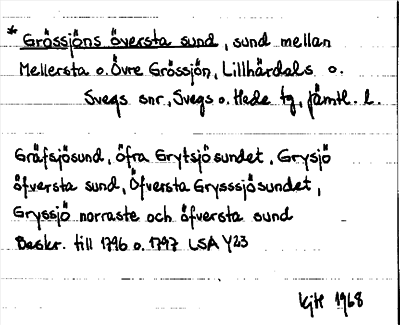 * Grössjöns översta sund, sund mellan
Mellersta o. Övre Grössjön, Lillhärdals o.
Svegs snr, Svegs o. Hede tg, Jämtl. l.
Gräfsjösund, öfra Grytsjösundet, Grysjö
öfversta sund, Öfversta Grysssjösundet,
Gryssjö norraste och öfversta sund
Beskr. till 1796 o. 1797 LSA Y23
1968